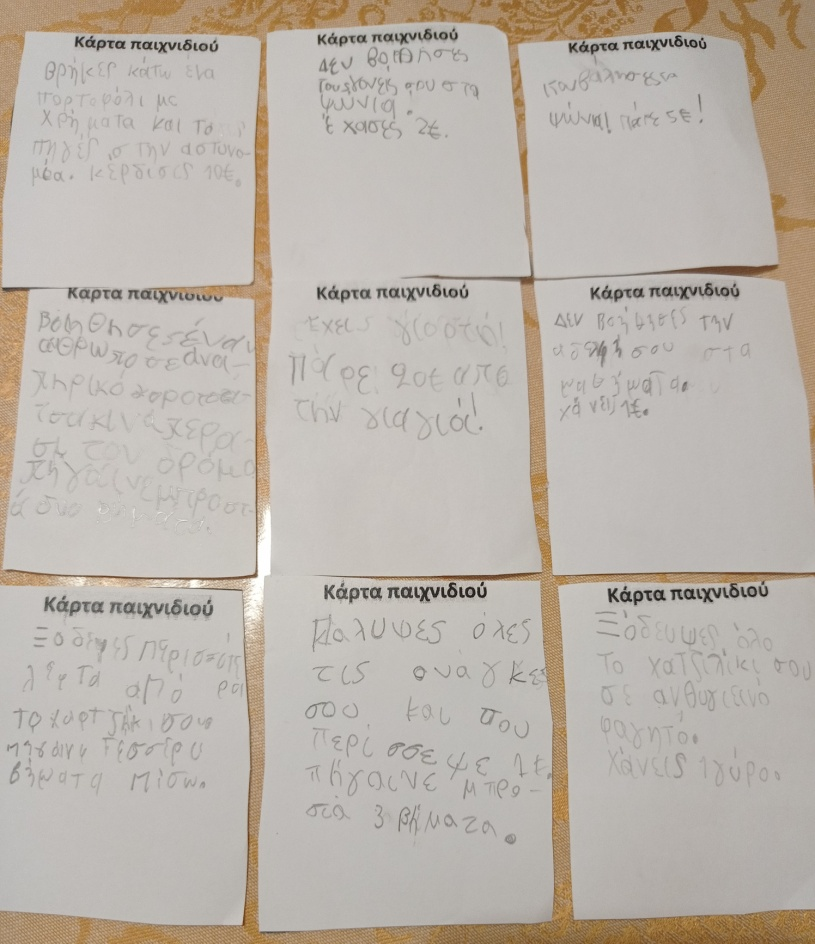 Κάρτα παιχνιδιού
Θρήκες κάτω ένα
πορτοφόλι με
χρήματα και το
πηγές σ την αστυνο-
μέα. κερδισις 10€.
Κάρτα παιχνιδιού
Δεν βοίθησες
τους γονείς σου στα
ψώνια.
έχασες 2€.
Κάρτα παιχνιδιού
ψώνια! πάρε 5€!
Κάρτα παιχνιδιού
Βοήθησες έναν
άθρωπο σε ανα-
πηρικό
να περα-
σει τον δρόμο
πήγαινε μπροστ-
ά δυο
Κάρτα παιχνιδιού
Έχεις γιορτή!
Πάρε 20€ από
την γιαγιά!
Κάρτα παιχνιδιού
Δεν βοήθησες την
αδερφή σου στα
μαθήματα.
χάνεις 1€.
Κάρτα παιχνιδιού
Ξόδεψες περισσότε
λεφτά από
το χαρτζιλίκι σου
πήγαινε τέσσερα
βήματα πίσω.
Κάρτα παιχνιδιού
Καλυψες όλες
τις αναγκες
σου και σου
περίσσεψε 1€.
πήγαινε μπρο-
στα 3 βήματα.
Κάρτα παιχνιδιού
Ξόδευψες όλο
το χατζιλίκι σου
σε ανθυγιεινό
φαγητό.
χάνεις 1 γύρο.